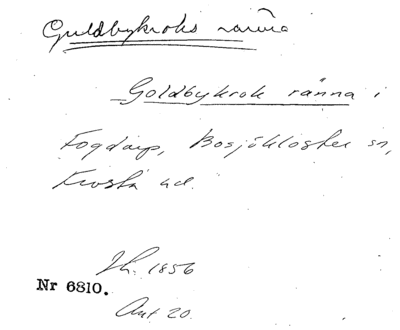 Guldbykroks ränna
Goldbykrok ränna i
Fogdarp, Bosjökloster sn,
Frosta hd.
Jh. 1856
Nr 6810.
Ant 20.